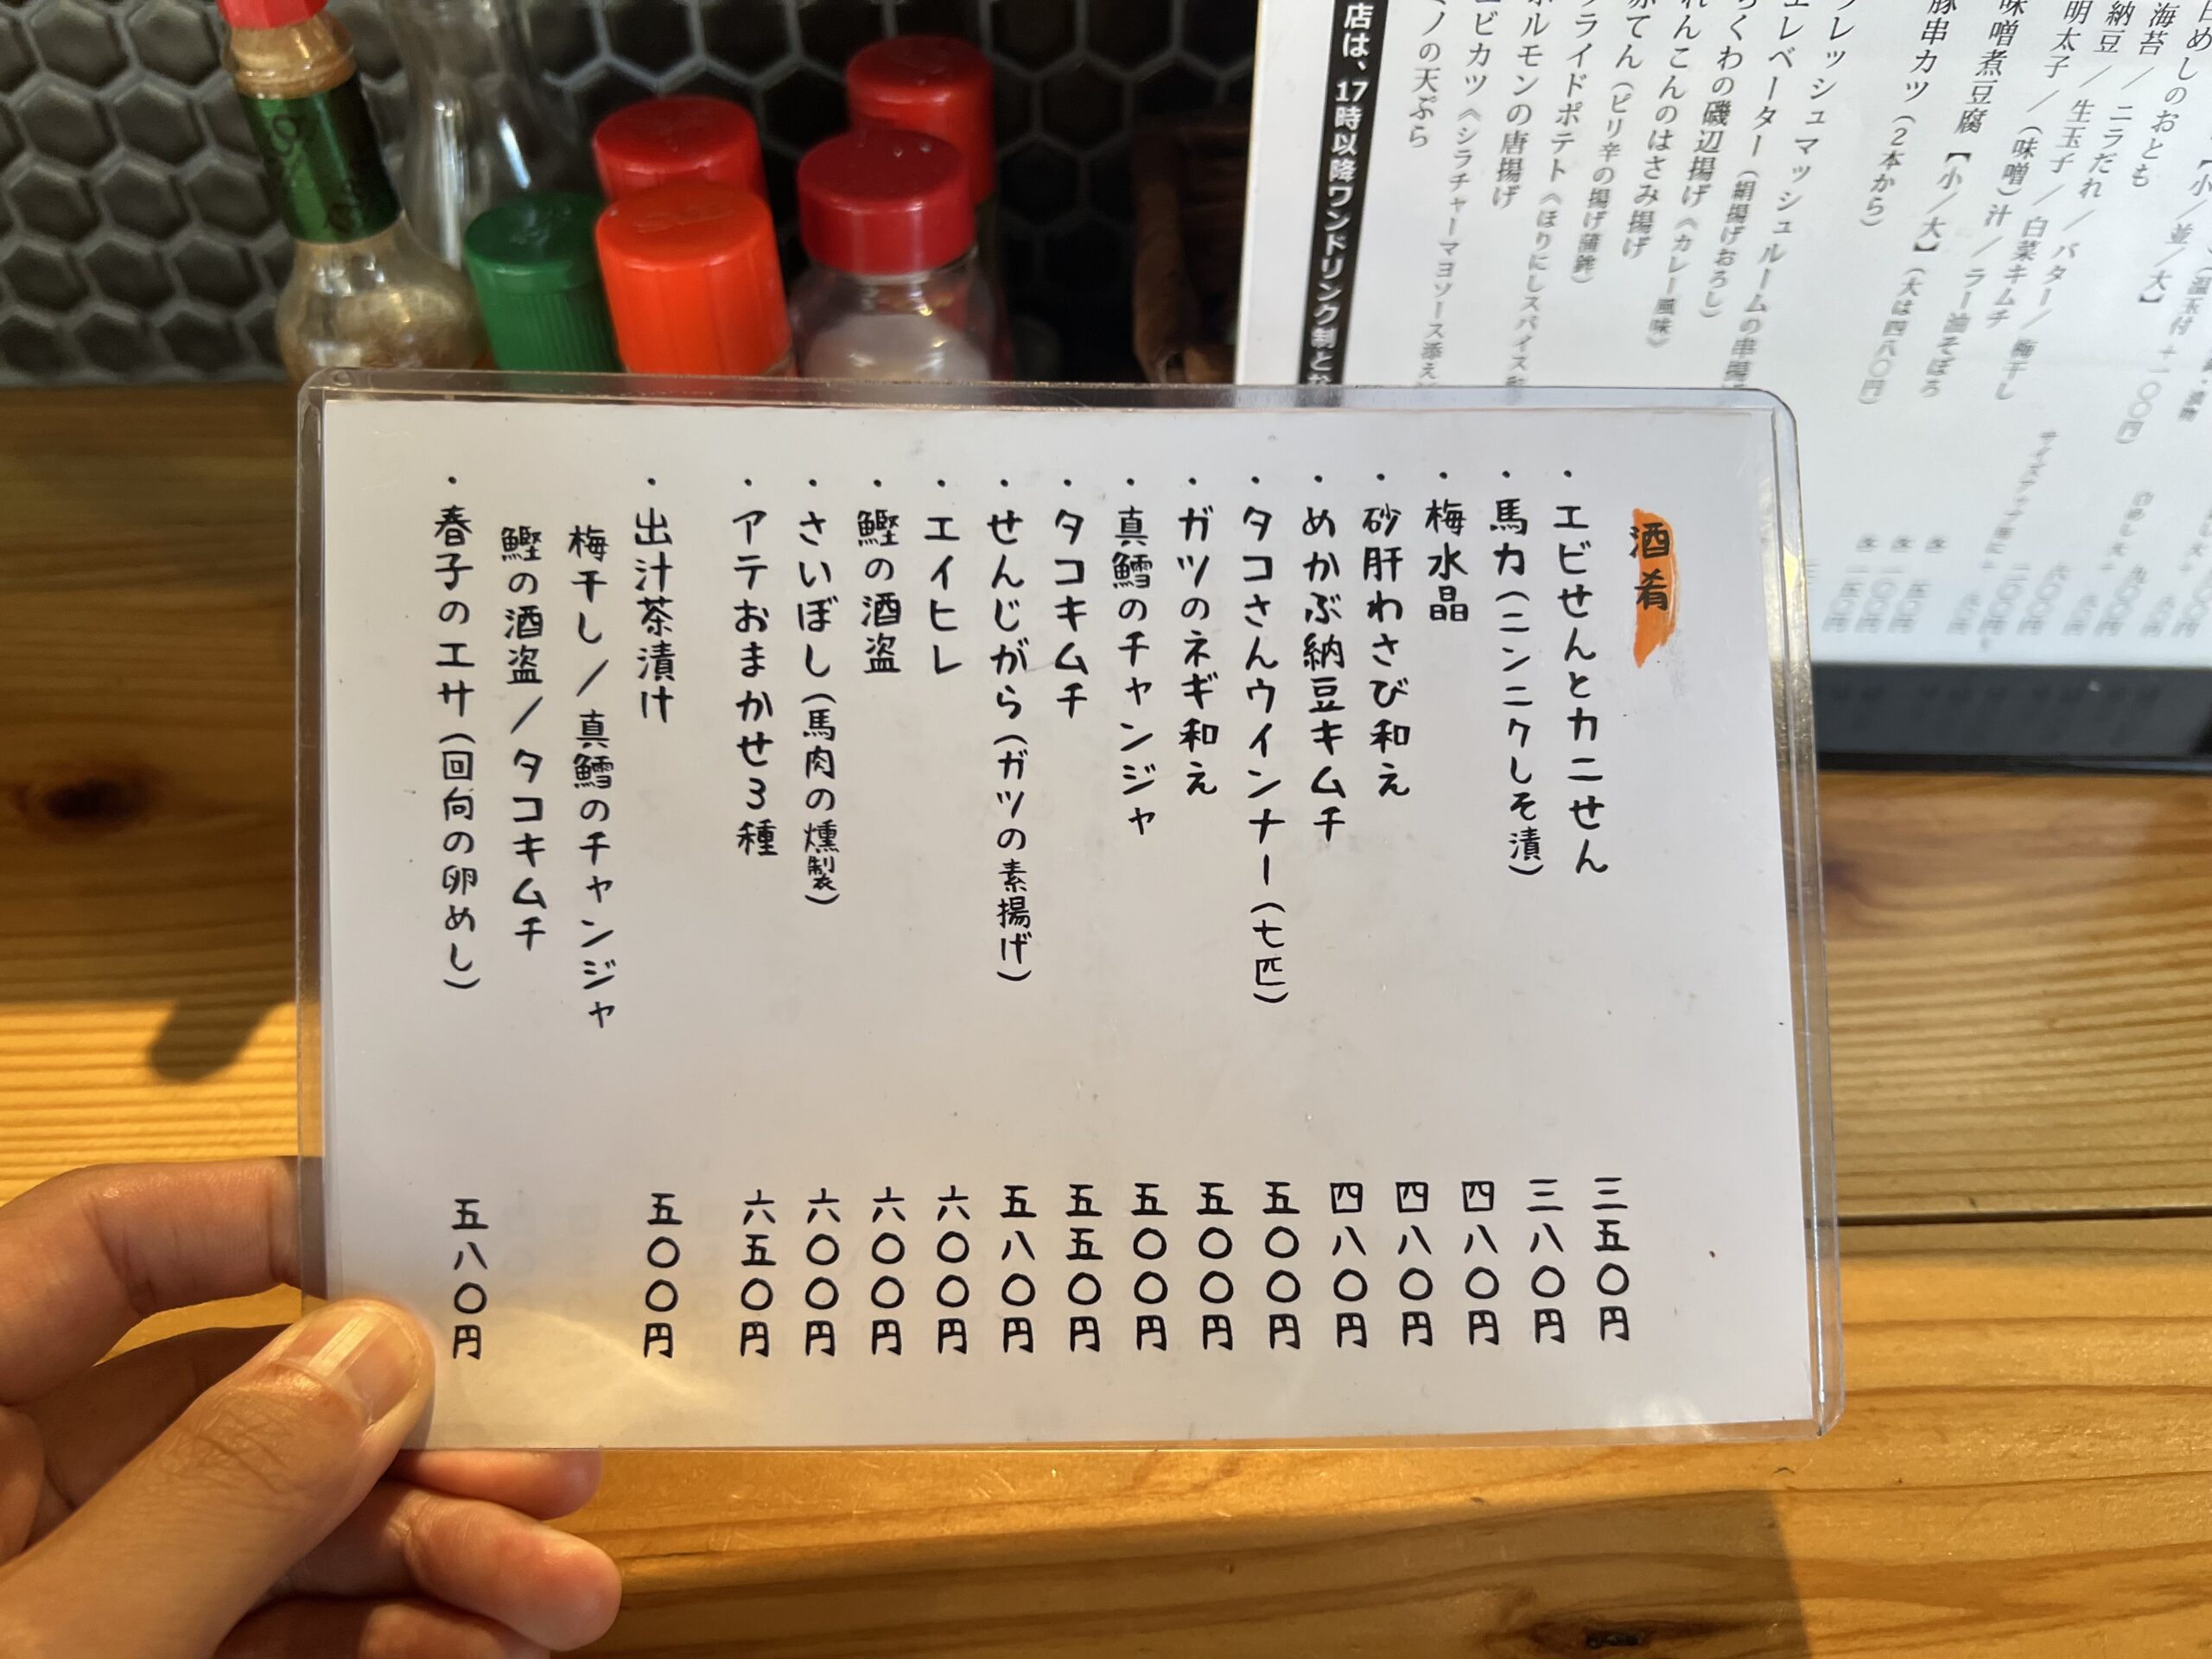 酒肴
・エビせんとカニせん 三五〇円
・馬力(ニンニクしそ漬) 三八〇円
・梅水晶 四八〇円
・砂肝わさび和え 四八〇円
・めかぶ納豆キムチ 四八〇円
・タコさんウインナー(七匹) 五〇〇円
・ガツのネギ和え 五〇〇円
・真鱈のチャンジャ 五〇〇円
・タコキムチ 五五〇円
・せんじがら(ガツの素揚げ) 五八〇円
・エイヒレ 六〇〇円
・鰹の酒盗 六〇〇円
・さいぼし(馬肉の燻製) 六〇〇円
・アテおまかせ3種 六五〇円
・出汁茶漬け 五〇〇円
梅干し/真鱈のチャンジャ
鰹の酒盗/タコキムチ
・春子のエサ(回向の卵めし) 五八〇円
めしのおとも
海苔/ニラだれ/バター/梅干し
納豆/生玉子/白菜キムチ
明太子/(味噌)汁/ラー油そぼろ
味噌煮豆腐【小/大】(大は四八〇円)
豚串カツ(2本から)
レッシュマッシュルームの串揚
エレベーター(絹揚げおろし)
ちくわの磯辺揚げ《カレー風味》
れんこんのはさみ揚げ
赤てん(ピリ辛の揚げ蒲鉾)
フライドポテト《ほりにしスパイス
ホルモンの唐揚げ
エビカツ《シラチャーマヨソース添え
ミノの天ぷら
店は、17時以降ワンドリンク制とな